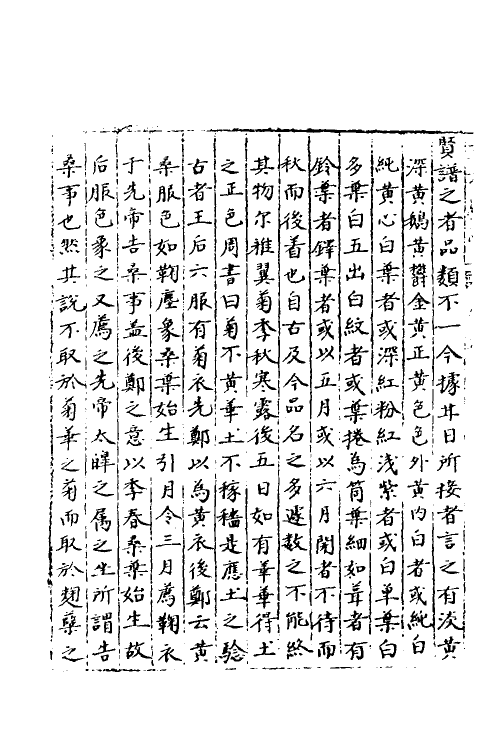 賢譜之者品類不一今據耳目所接者言之有淡黄
深黄鵝黄欝金黄正黄色色外黄內白者或純白
純黄心白葉者或深紅粉紅淺紫者或白單葉白
多葉白五出白紋者或葉捲為筒葉細如茸者有
鈴葉者鐸葉者或以五月或以六月開者不待而
秋而後着也自古及今品名之多遽数之不能終
其物尔雅翼菊季秋寒露後五日如有華華得土
之正色周書曰菊不黄華土不稼穡是應土之驗
古者王后六服有菊衣先鄭以為黄衣後鄭云黄
桑服色如鞠塵象桑葉始生引月令三月薦鞠衣
于先帝吿桑事益後鄭之意以季春桑葉始生故
后服色象之又薦之先帝太皞之属之坐所謂告
桑事也然其說不取於菊華之菊而取於麹櫱之